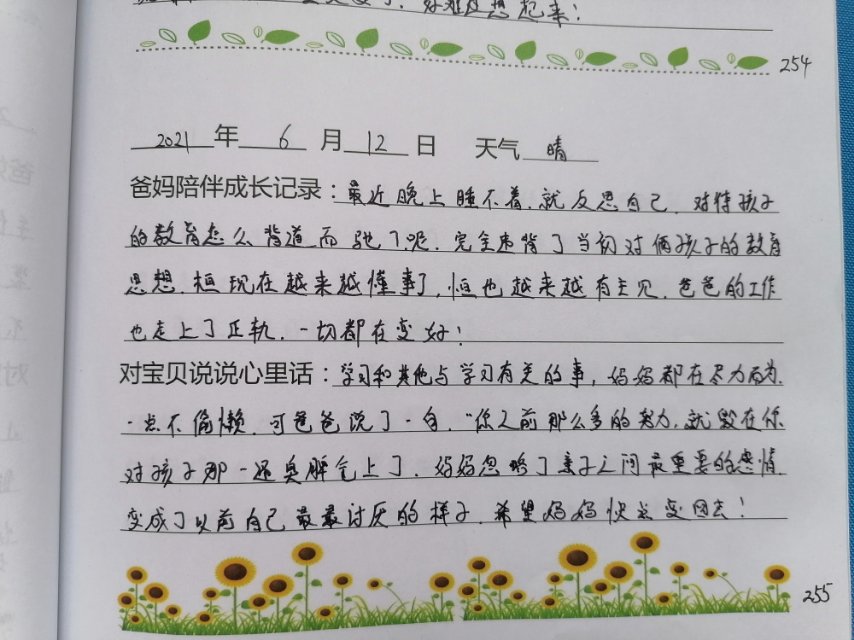 好难反想起来！
254
2021 年 6 月 12 日 天气 晴
爸妈陪伴成长记录：最近晚上睡不着，就反思自己，对待孩子
的教育怎么背道而驰了呢，完全违背了当初对俩孩子的教育
思想，桓现在越来越懂事了，恒也越来越有主见，爸爸的工作
也走上了正轨，一切都在变好！
对宝贝说说心里话：学习和其他与学习有关的事，妈妈都在尽力而为，
一点不偷懒，可爸爸说了一句，“你之前那么多的努力，就毁在你
对孩子那一通臭脾气上了，妈妈忽略了亲子之间最重要的感情，
变成了以前自己最最讨厌的样子，希望妈妈快点变回去！
255